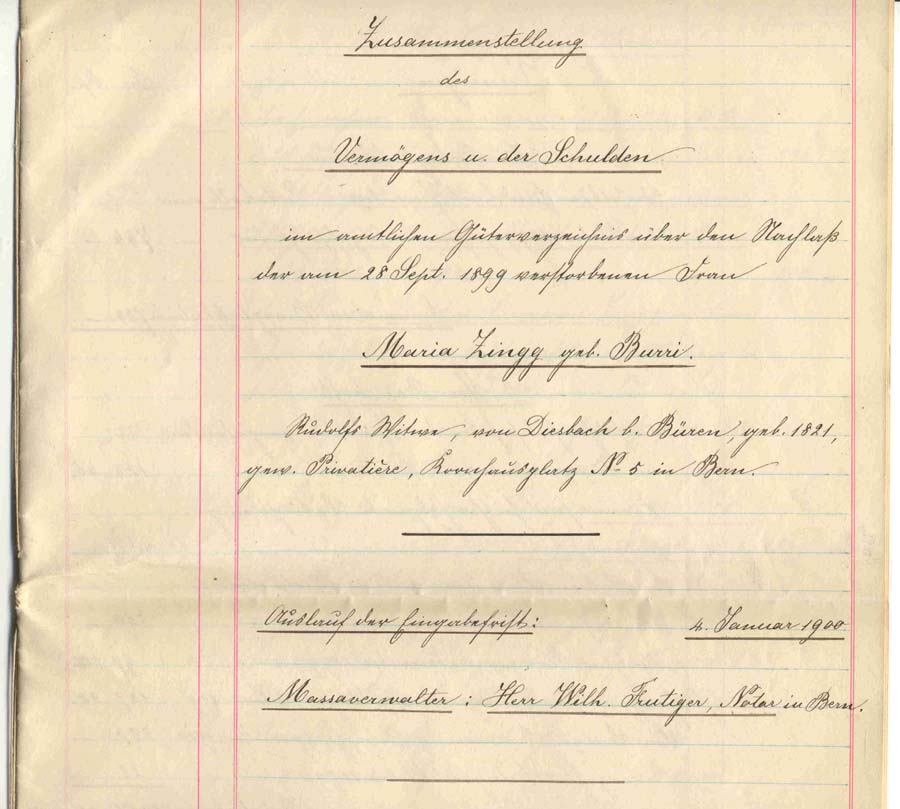 Zusammenstellung
des
Vermögens u. der Schulden
im amtlichen Güterverzeichnis über den Nachlaß
der am 28 Sept. 1899 verstorbenen Frau
Maria Zingg geb. Burri.
Rudolfs Witwe, von Diesbach b. Büren, geb. 1821,
gew. Privatière, Kornhausplatz No 5 in Bern.
Auslauf der Eingabefrist: 4. Januar 1900
Massaverwalter: Herr Wilh. Frutiger, Notar in Bern.